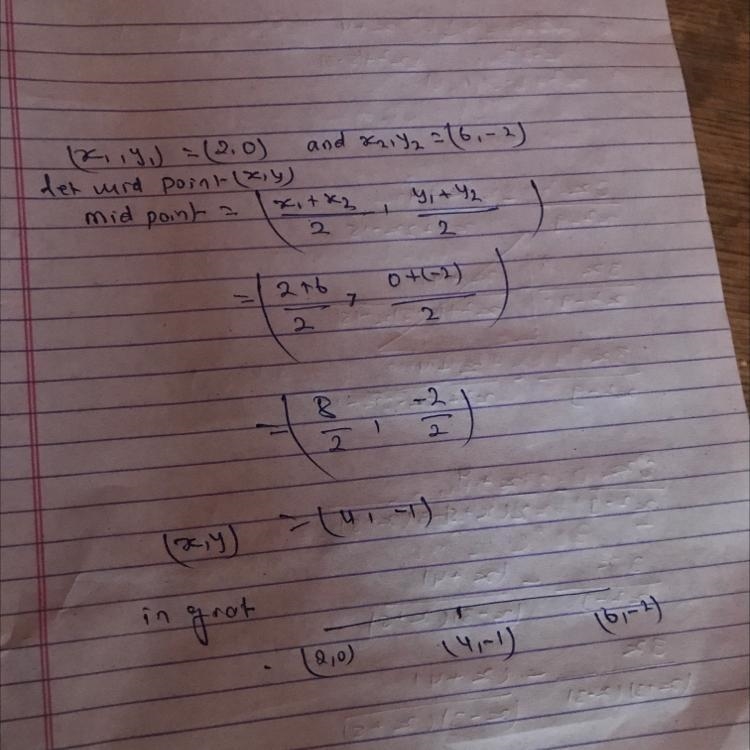 (x₁, y₁) = (2,0) and x₂,y₂ = (6,-2)
let mid point (x,y)
mid point = (x₁+x₂/2, y₁+y₂/2)
= (2+6/2, 0+(-2)/2)
= (8/2, -2/2)
(x,y) = (4, -1)
in
(2,0) (4,-1) (6,-2)